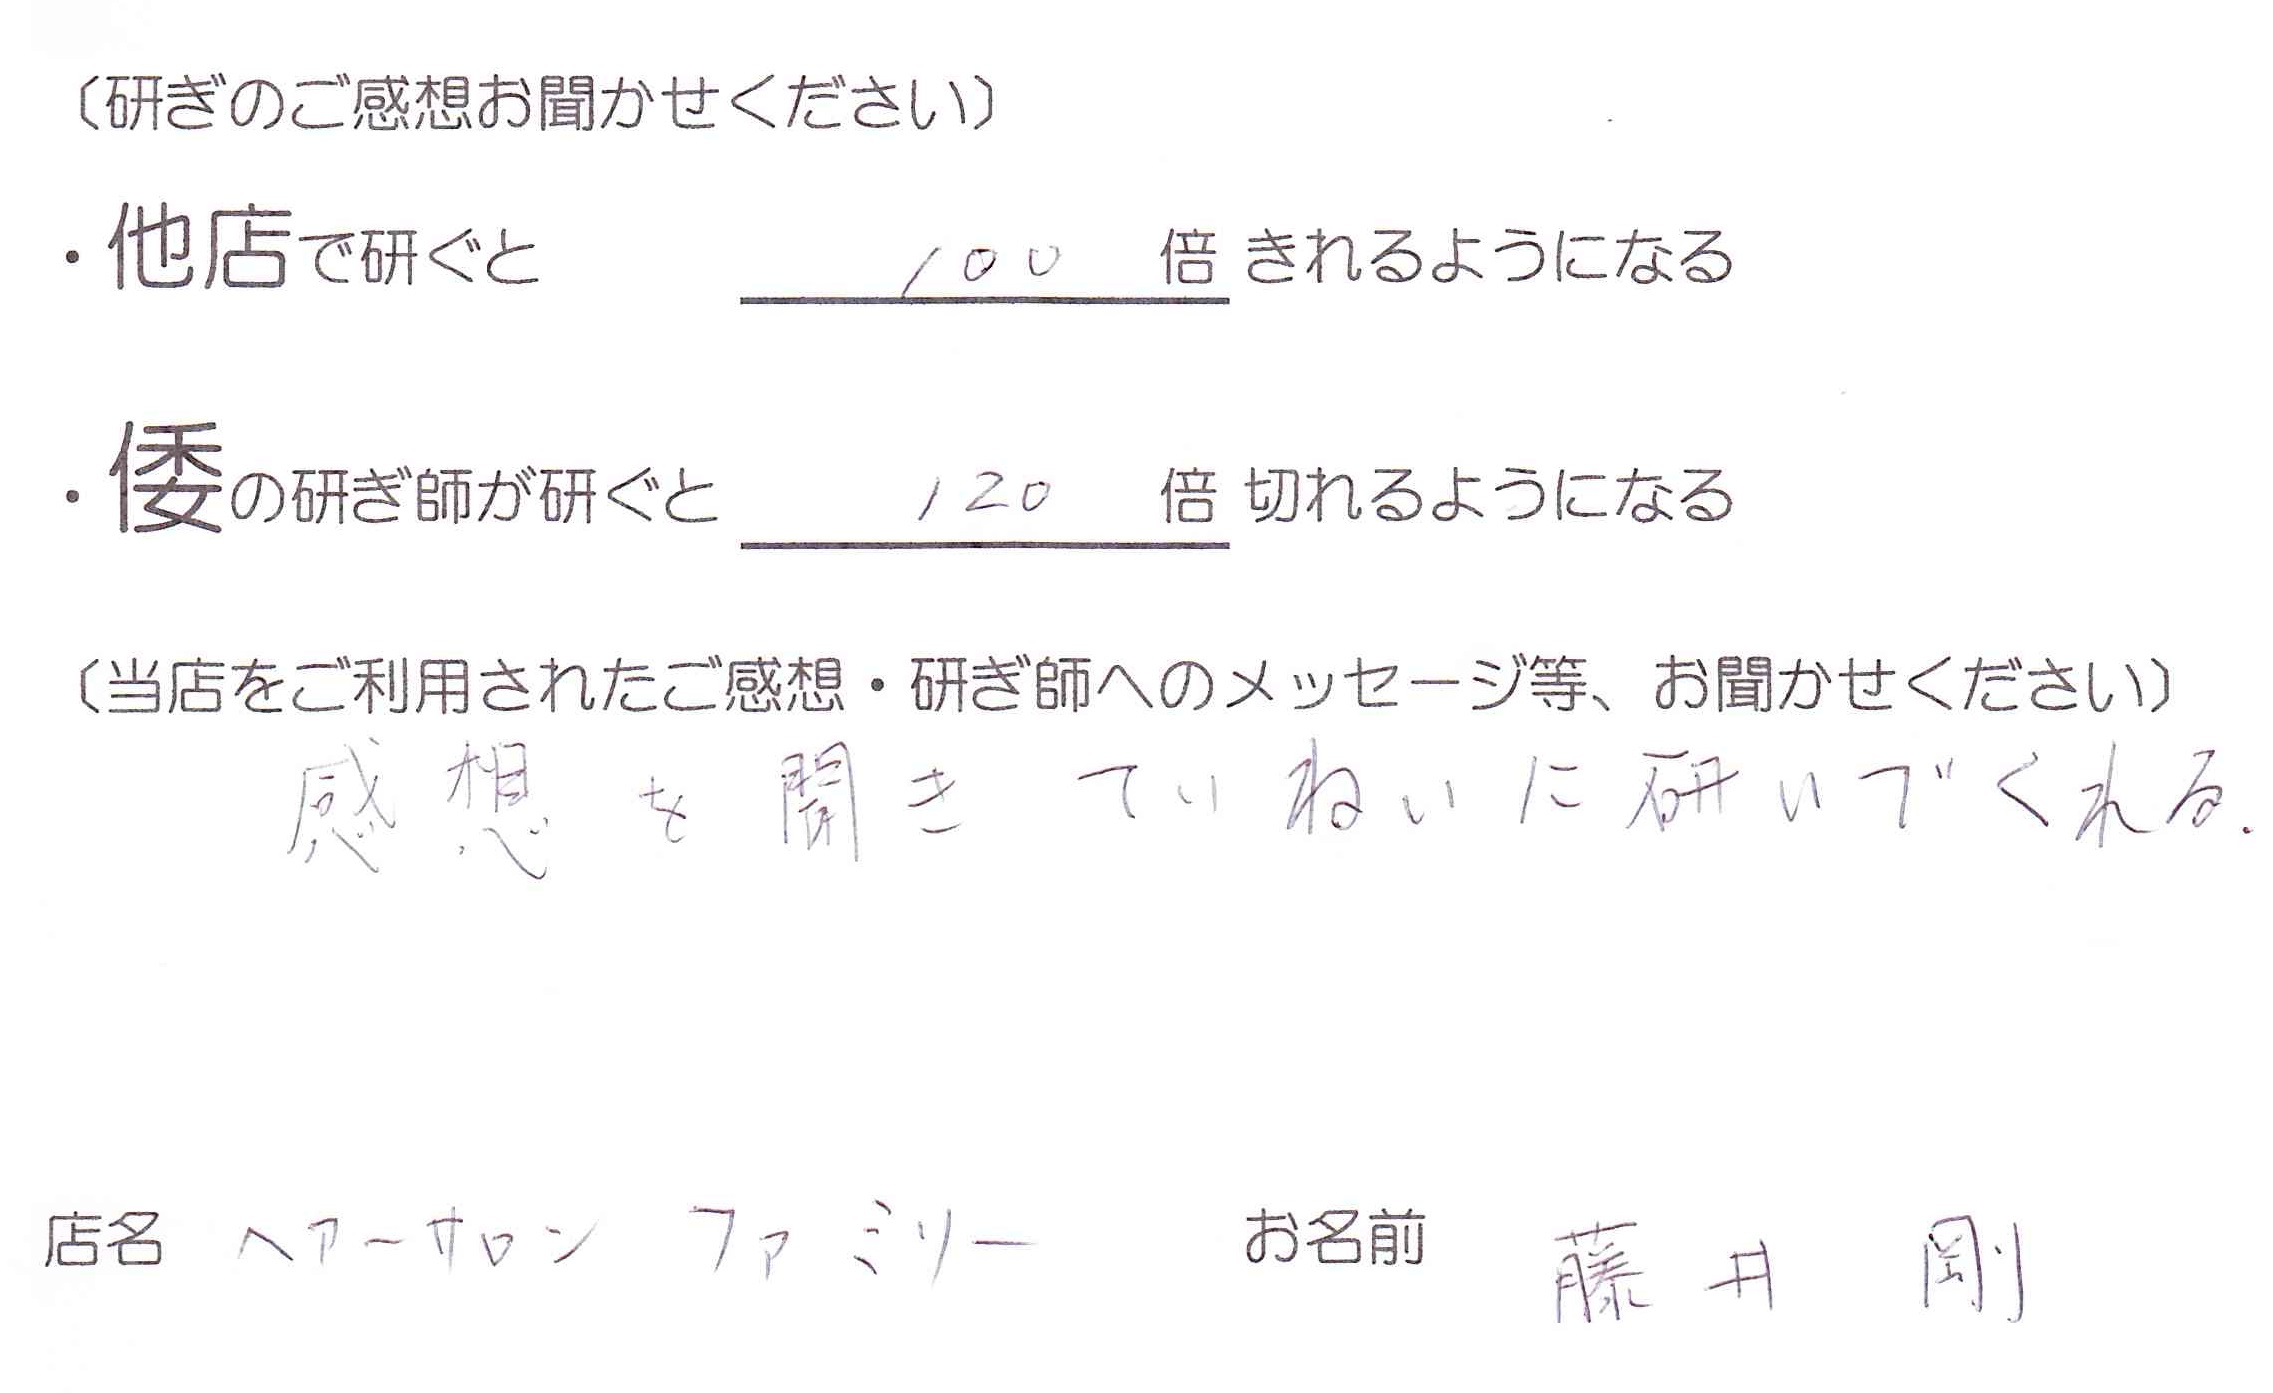 （研ぎのご感想お聞かせください）
・他店で研ぐと 100 倍 きれるようになる
・倭の研ぎ師が研ぐと 120 倍 切れるようになる
（当店をご利用されたご感想・研ぎ師へのメッセージ等、お聞かせください）
感想を聞きていねいに研いでくれる.
店名 ヘアーサロン ファミリー お名前 藤井 剛